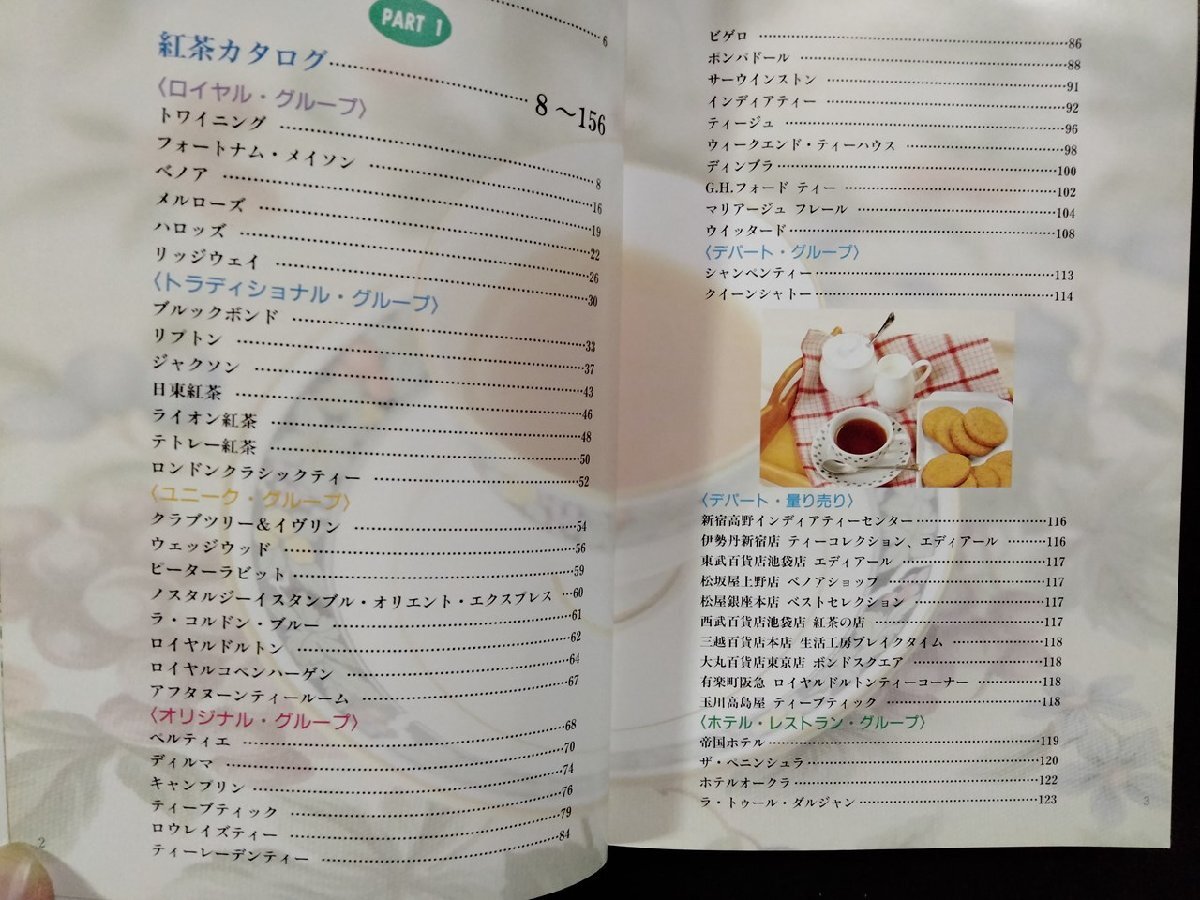 PART 1
6
紅茶カタログ 8〜156
〈ロイヤル・グループ〉
トワイニング 8
フォートナム・メイソン 16
ベノア 19
メルローズ 22
ハロッズ 26
リッジウェイ 30
〈トラディショナル・グループ〉
ブルックボンド 33
リプトン 37
ジャクソン 43
日東紅茶 46
ライオン紅茶 48
テトレー紅茶 50
ロンドンクラシックティー 52
〈ユニーク・グループ〉
クラブツリー&イヴリン 54
ウェッジウッド 56
ピーターラビット 59
ノスタルジーイスタンブル・オリエント・エクスプレス 60
ラ・コルドン・ブルー 61
ロイヤルドルトン 62
ロイヤルコペンハーゲン 64
アフタヌーンティールーム 67
〈オリジナル・グループ〉
ペルティエ 68
ディルマ 70
キャンプリン 74
ティーブティック 76
ロウレイズティー 79
ティーレーデンティー 84
2
ビゲロ 86
ポンパドール 88
サーウインストン 91
インディアティー 92
ティージュ 96
ウィークエンド・ティーハウス 98
ディンブラ 100
G.H.フォード ティー 102
マリアージュ フレール 104
ウイッタード 108
〈デパート・グループ〉
シャンペンティー 113
クイーンシャトー 114
〈デパート・量り売り〉
新宿高野インディアティーセンター 116
伊勢丹新宿店 ティーコレクション、エディアール 116
東武百貨店池袋店 エディアール 117
松坂屋上野店 ベノアショップ 117
松屋銀座本店 ベストセレクション 117
西武百貨店池袋店 紅茶の店 117
三越百貨店本店 生活工房ブレイクタイム 118
大丸百貨店東京店 ボンドスクエア 118
有楽町阪急 ロイヤルドルトンティーコーナー 118
玉川高島屋 ティーブティック 118
〈ホテル・レストラン・グループ〉
帝国ホテル 119
ザ・ペニンシュラ 120
ホテルオークラ 122
ラ・トゥール・ダルジャン 123
3